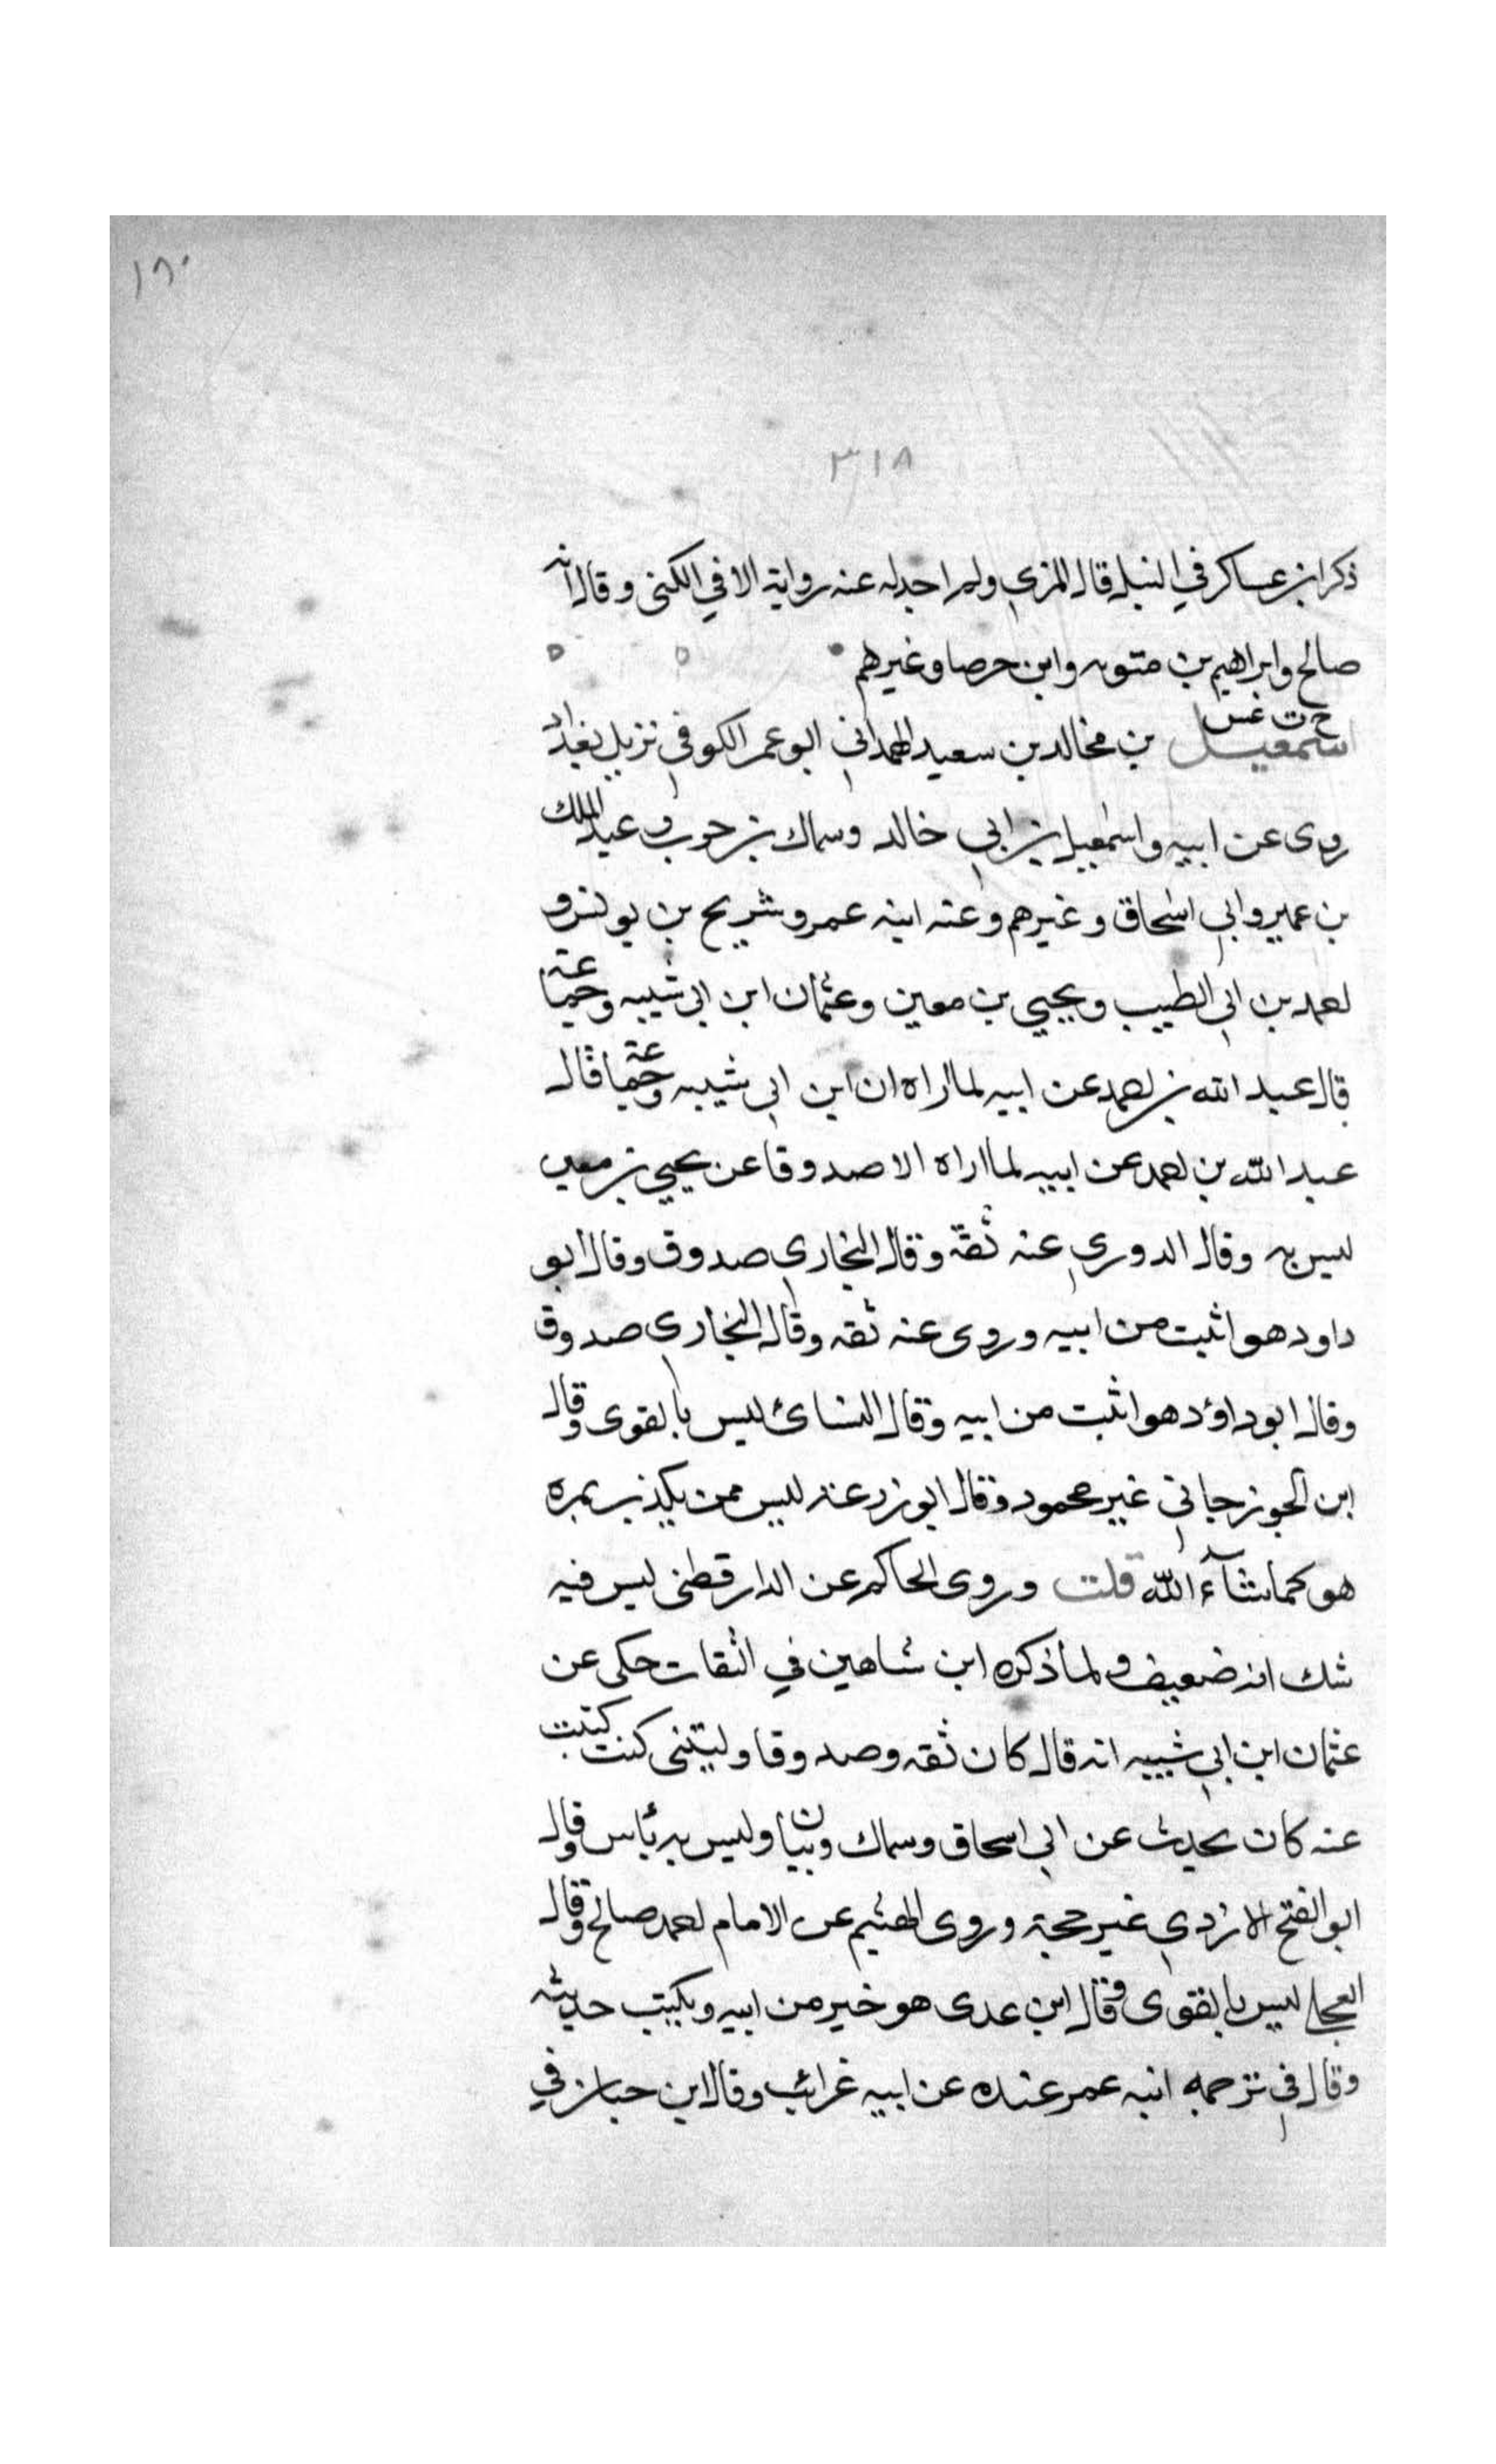 ١٨٠
٣١٨
ذكر ابن عساكر في النبل قال المزي ولم اجد له عنه رواية الا في الكنى وقال انه
صالح وابراهيم بن متويه وابن حرصا وغيرهم
خ ت عس
اسمعيل بن مخالد بن سعيد الهمداني ابو عمر الكوفي نزيل بغداد
روى عن ابيه واسمعيل بن ابي خالد وسماك بن حرب وعبد الملك
بن عمير وابي اسحاق وغيرهم وعنه ابنه عمر وشريح بن يونس و
احمد بن ابي الطيب ويحيي بن معين وعثمان ابن ابي شيبه وجماعة
قال عبد الله بن احمد عن ابيه لما اراه ان ابن ابي شيبه وجماعة قال
عبد الله بن احمد عن ابيه لما اراه الا صدوقا عن يحيي بن معين
ليس به وقال الدوري عنه ثقة وقال البخاري صدوق وقال ابو
داود هو اثبت من ابيه وروى عنه ثقه وقال البخاري صدوق
وقال ابو داؤد هو اثبت من ابيه وقال النسائ ليس بالقوى وقال
ابن الجوزجاني غير محمود وقال ابو زرعه ليس ممن يكذب بمره
هو كما شآء الله قلت وروى الحاكم عن الدارقطنى ليس فيه
شك انه ضعيف ولما ذكره ابن شاهين في الثقات حكى عن
عثمان ابن ابي شيبه انه قال كان ثقه وصدوقا وليتنى كنت كتبت
عنه كان يحدث عن ابي اسحاق وسماك وبيان وليس به بأس وقال
ابو الفتح الازدي غير حجة وروى الهثيم عن الامام احمد صالح وقال
العجلي ليس بالقوى وقال ابن عدى هو خير من ابيه ويكتب حديثه
وقال في ترجمه ابنه عمر عنده عن ابيه غرائب وقال ابن حبان في